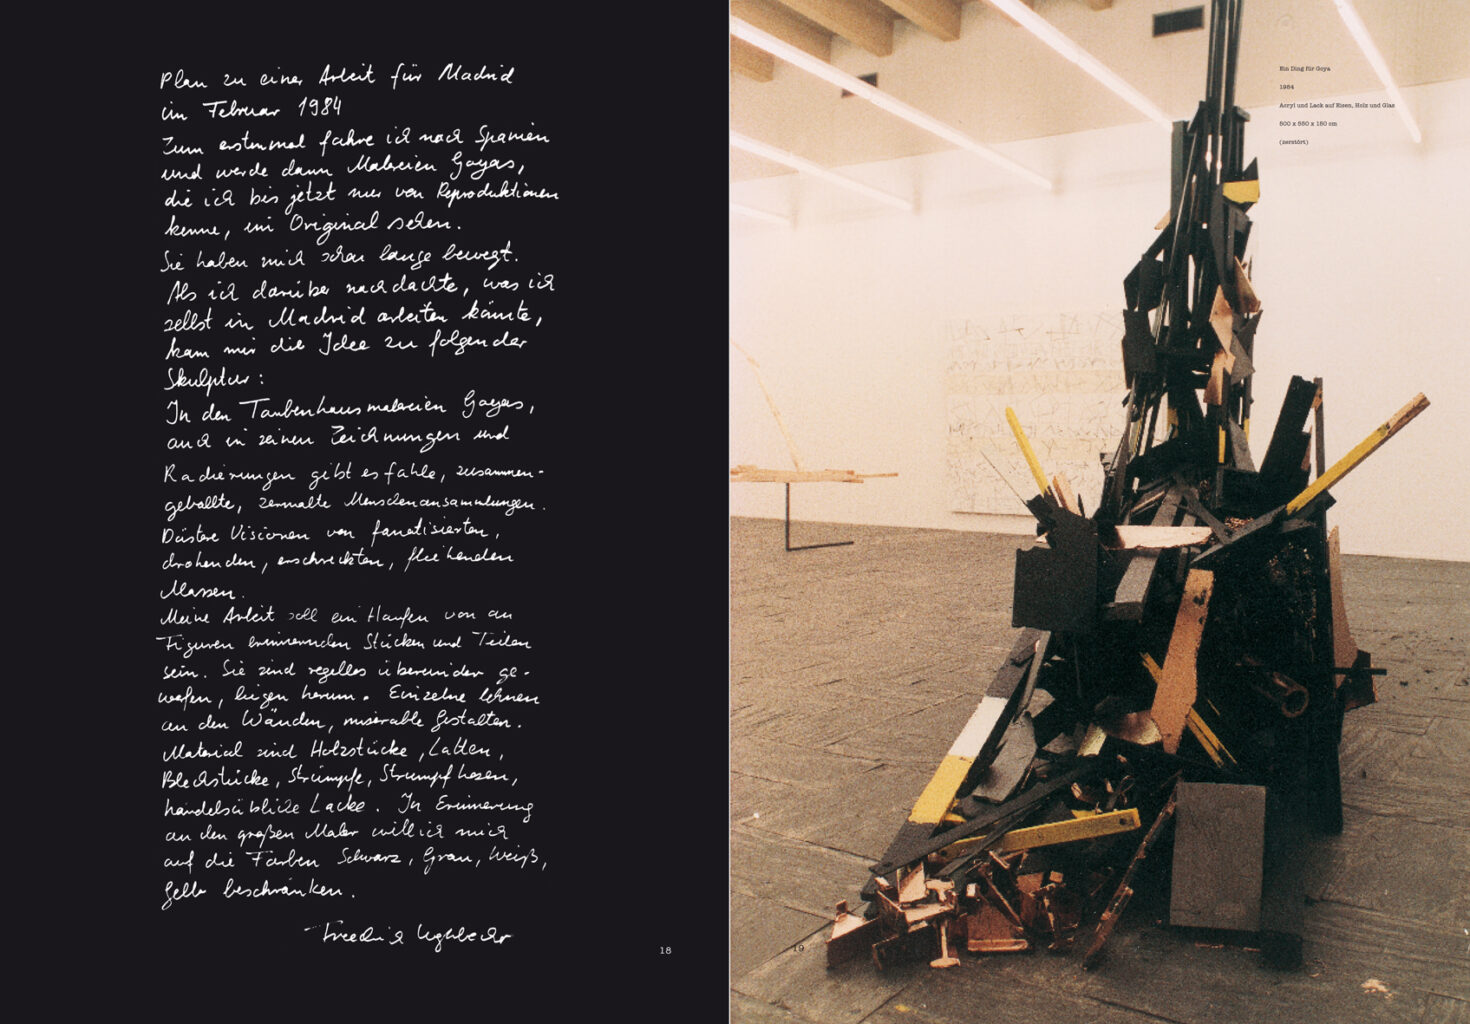 Plan zu einer Arbeit für Madrid
im Februar 1984
Zum erstenmal fahre ich nach Spanien
und werde dann Malereien Goyas,
die ich bis jetzt nur von Reproduktionen
kenne, im Original sehen.
Sie haben mich schon lange bewegt.
Als ich darüber nachdachte, was ich
selbst in Madrid arbeiten könnte,
kam mir die Idee zu folgender
Skulptur:
In den Taubenhausmalereien Goyas,
auch in seinen Zeichnungen und
Radierungen gibt es fahle, zusammen-
geballte, zermalte Menschenansammlungen.
Düstere Visionen von fanatisierten,
drohenden, erschreckten, fliehenden
Massen.
Meine Arbeit soll ein Haufen von an
Figuren erinnernden Stücken und Teilen
sein. Sie sind regellos übereinander ge-
worfen, liegen herum. Einzelne lehnen
an den Wänden, miserable Gestalten.
Material sind Holzstücke, Latten,
Blechstücke, Strümpfe, Strumpfhosen,
handelsübliche Lacke. In Erinnerung
an den großen Maler will ich mich
auf die Farben Schwarz, Grau, Weiß,
Gelb beschränken.
18
Ein Ding für Goya
1984
Acryl und Lack auf Eisen, Holz und Glas
500 x 550 x 150 cm
(zerstört)
19